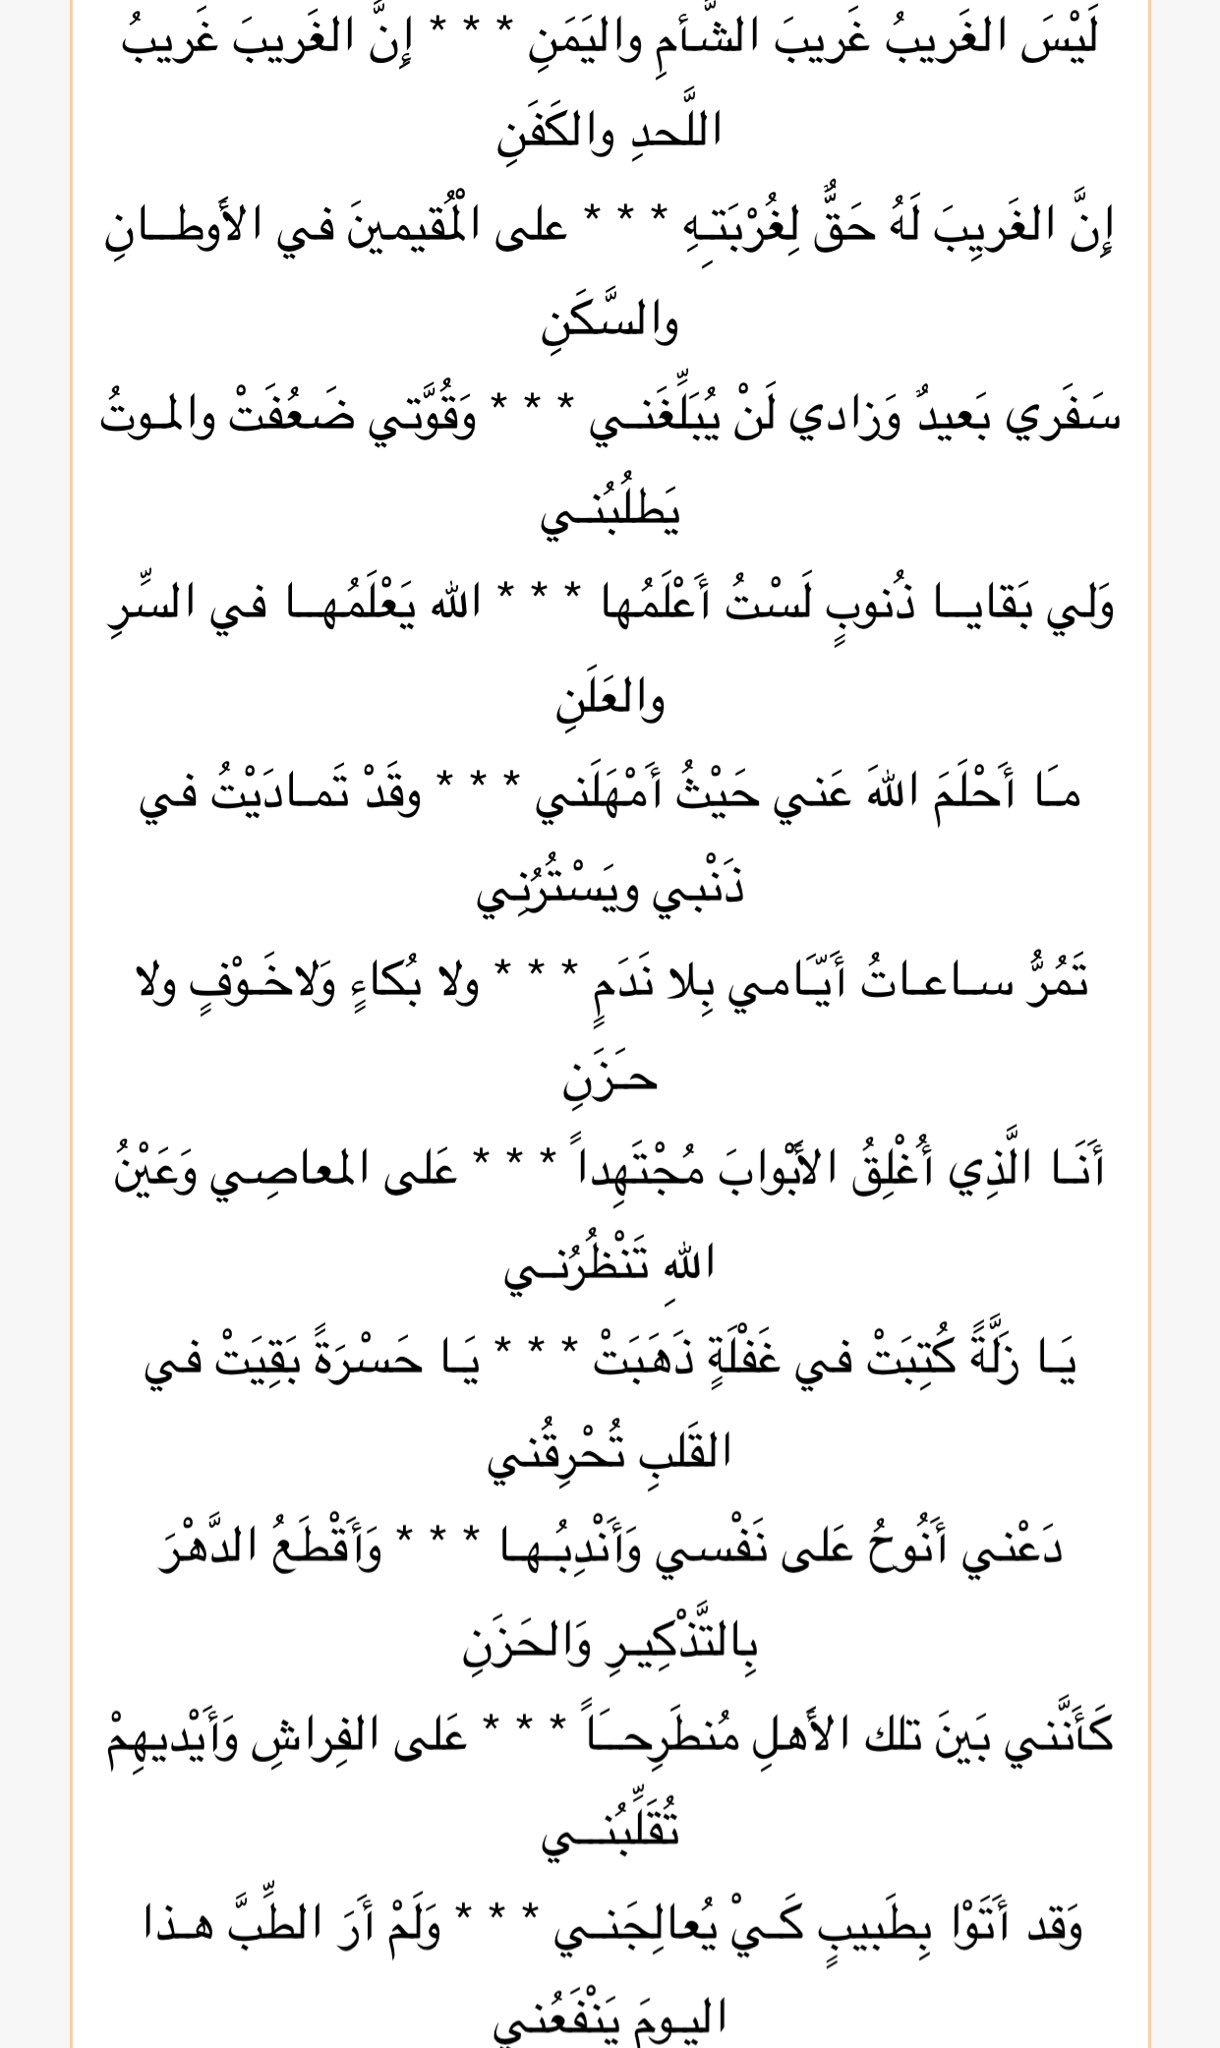 لَيْسَ الغَريبُ غَريبَ الشَّأمِ واليَمَنِ * * * إِنَّ الغَريبَ غَريبُ
اللَّحدِ والكَفَنِ
إِنَّ الغَريِبَ لَهُ حَقٌّ لِغُرْبَتـِهِ * * * على الْمُقيمينَ في الأَوطــانِ
والسَّكَنِ
سَفَري بَعيدٌ وَزادي لَنْ يُبَلِّغَنــي * * * وَقُوَّتي ضَعُفَتْ والمـوتُ
يَطلُبُنــي
وَلي بَقايــا ذُنوبٍ لَسْتُ أَعْلَمُها * * * الله يَعْلَمُهــا في السِّرِ
والعَلَنِ
مـَا أَحْلَمَ اللهَ عَني حَيْثُ أَمْهَلَني * * * وقَدْ تَمـادَيْتُ في
ذَنْبي ويَسْتُرُنِي
تَمُرُّ سـاعـاتُ أَيّـَامي بِلا نَدَمٍ * * * ولا بُكاءٍ وَلاخَـوْفٍ ولا
حـَزَنِ
أَنَـا الَّذِي أُغْلِقُ الأَبْوابَ مُجْتَهِداً * * * عَلى المعاصِي وَعَيْنُ
اللهِ تَنْظُرُنــي
يَـا زَلَّةً كُتِبَتْ في غَفْلَةٍ ذَهَبَتْ * * * يَـا حَسْرَةً بَقِيَتْ في
القَلبِ تُحْرِقُني
دَعْني أَنُوحُ عَلى نَفْسي وَأَنْدِبُـهـا * * * وَأَقْطَعُ الدَّهْرَ
بِالتَّذْكِيـرِ وَالحَزَنِ
كَأَنَّني بَينَ تلك الأَهلِ مُنطَرِحــَاً * * * عَلى الفِراشِ وَأَيْديهِمْ
تُقَلِّبُنــي
وَقد أَتَوْا بِطَبيبٍ كَـيْ يُعالِجَنـي * * * وَلَمْ أَرَ الطِّبَّ هـذا
اليـومَ يَنْفَعُني